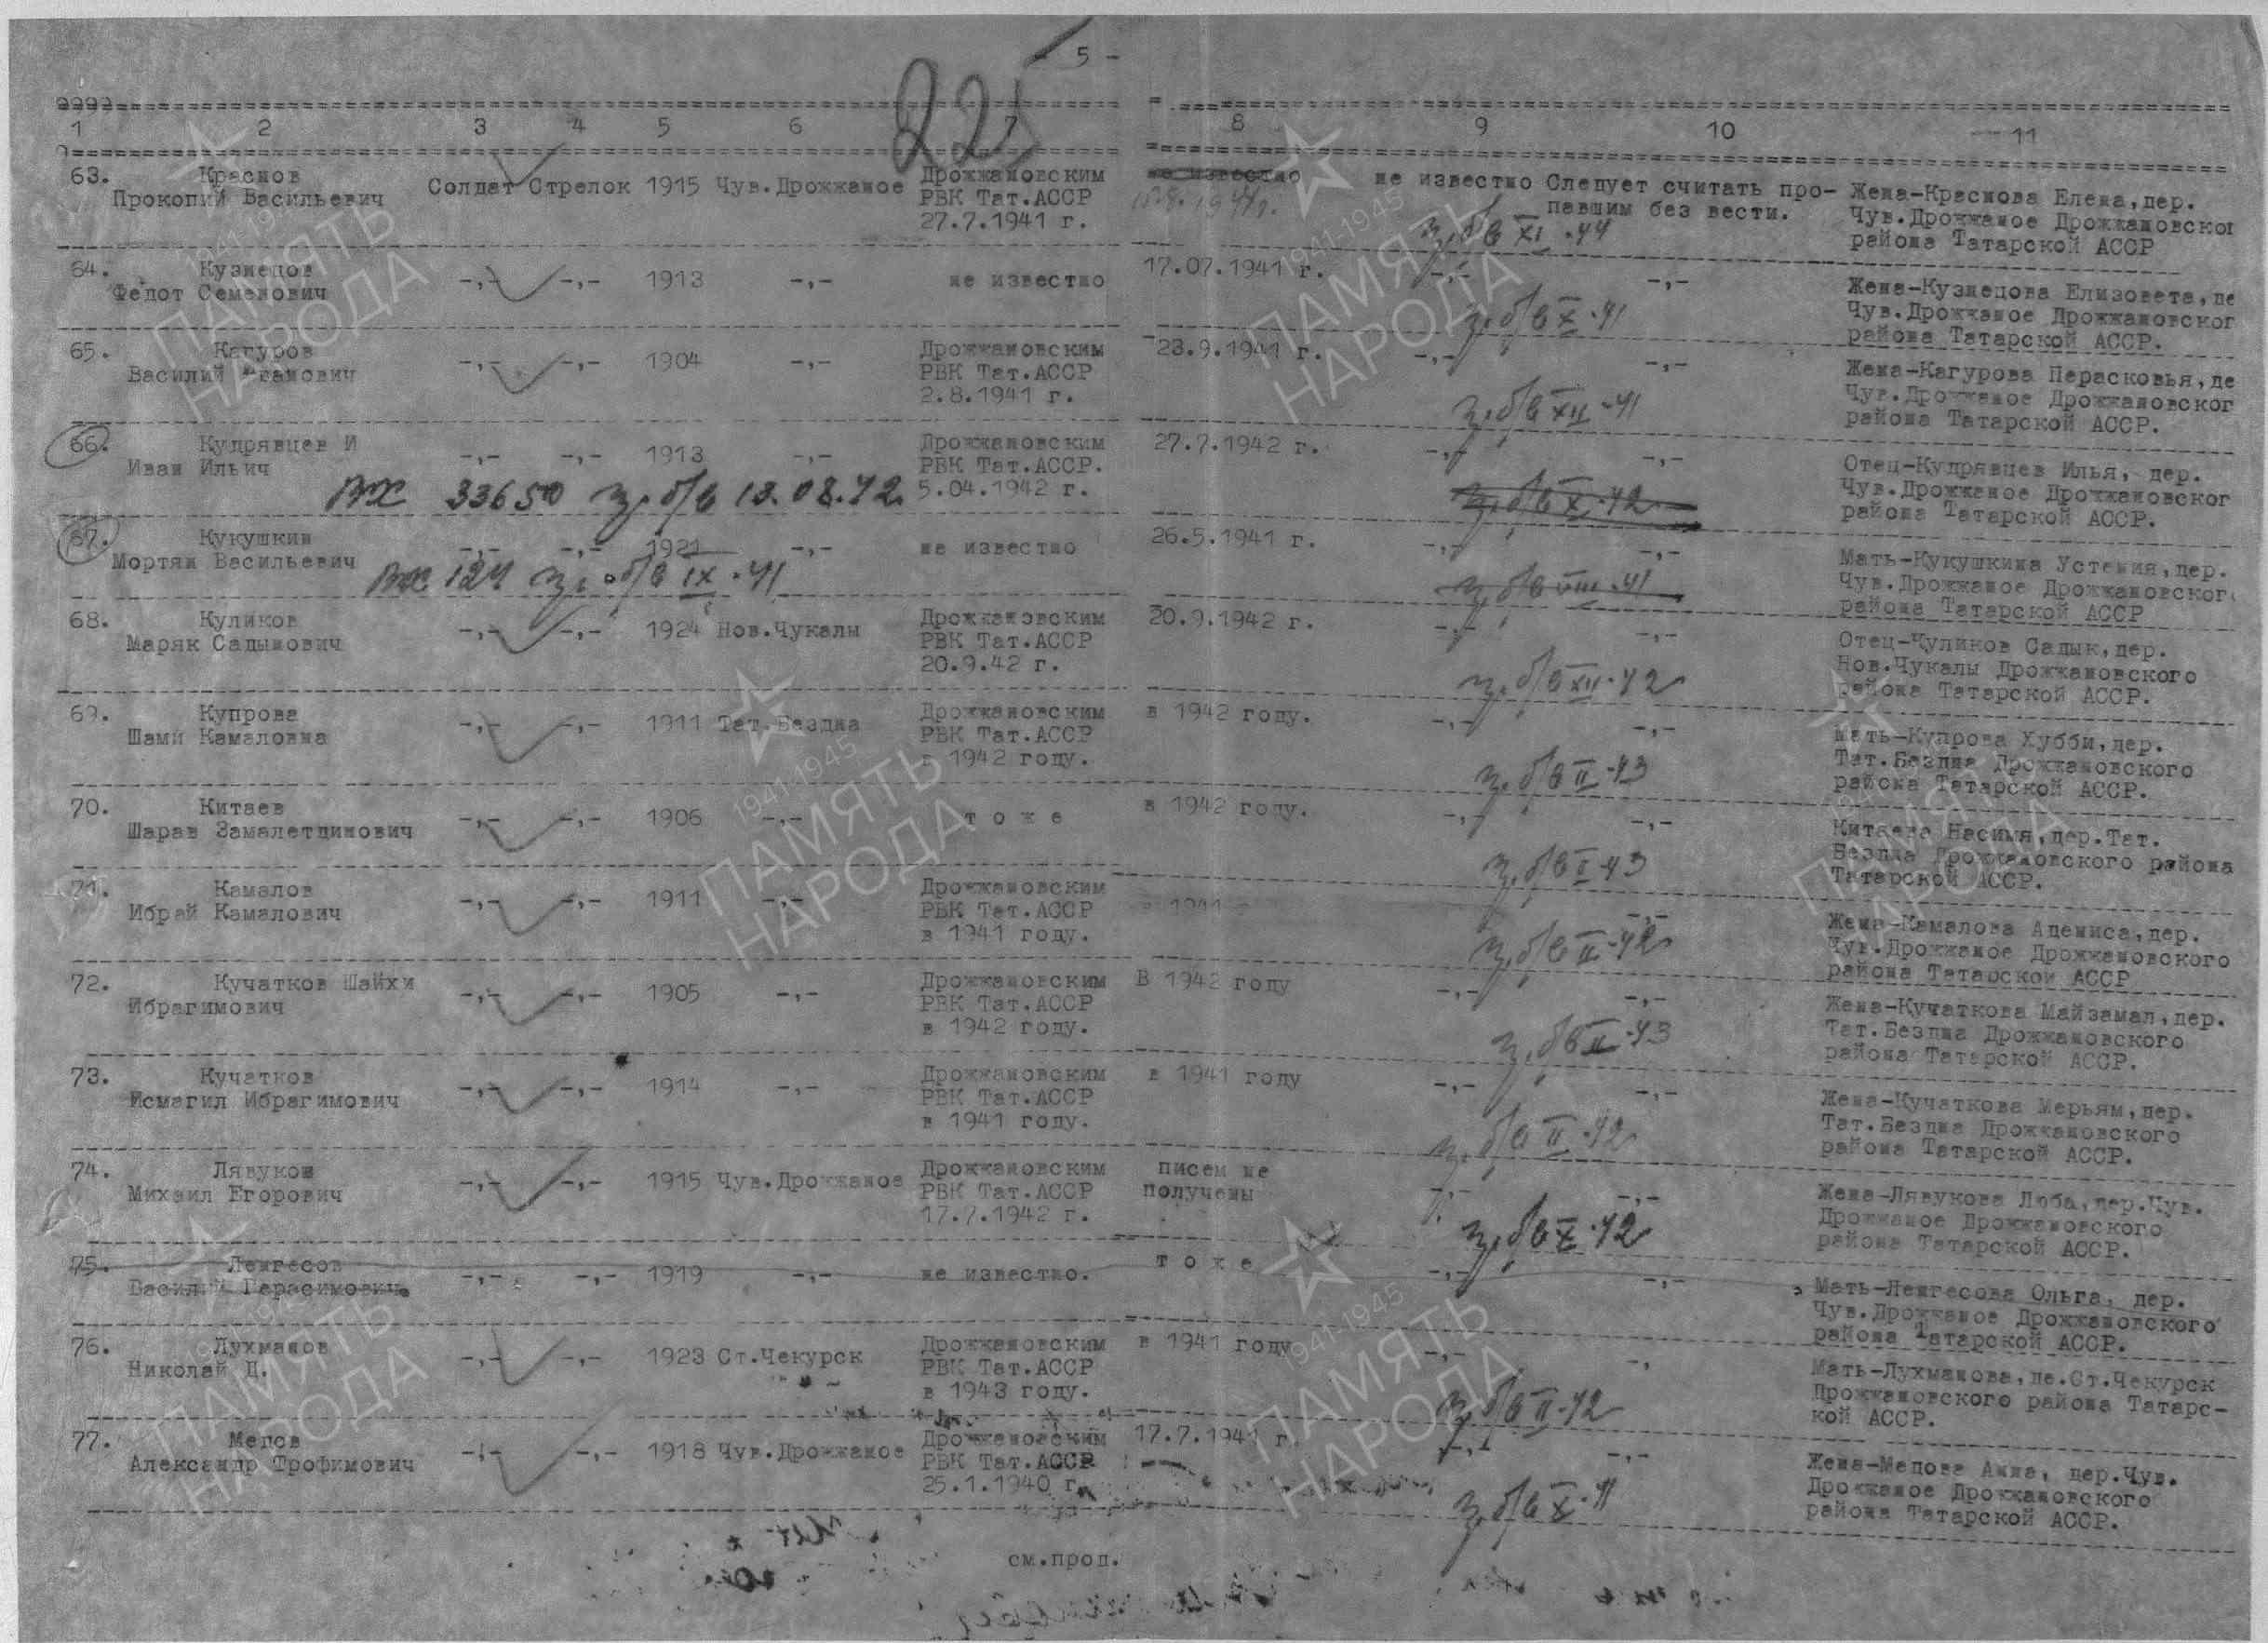 - 5 -
221
1 2 3 4 5 6 7 8 9 10 11
63. Краснов
Прокопий Васильевич
Солдат Стрелок 1915 Чув.Дрожжаное
Дрожжановским
РВК Тат.АССР
27.7.1941 г.
не известно
не известно Следует считать про-
павшим без вести.
з. б/в XI-44
Жена-Краснова Елена, дер.
Чув.Дрожжаное Дрожжановског
района Татарской АССР
64. Кузнецов
Федот Семенович
-,- -,- 1913 -,- не известно
17.07.1941 г. -,- -,-
з. б/в X-41
Жена-Кузнецова Елизовета, де
Чув.Дрожжаное Дрожжановског
района Татарской АССР.
65. Кагуров
Василий
-,- -,- 1904 -,-
Дрожжановским
РВК Тат.АССР
2.8.1941 г.
23.9.1941 г. -,- -,-
з. б/в XII-41
Жена-Кагурова Перасковья, де
Чув.Дрожжаное Дрожжановског
района Татарской АССР.
66. Кудрявцев И
Иван Ильич
-,- -,- 1913 -,-
Дрожжановским
РВК Тат.АССР.
5.04.1942 г.
вх 33650 з. б/в 13.08.42.
27.7.1942 г. -,- -,-
з. б/в X-42
Отец-Кудрявцев Илья, дер.
Чув.Дрожжаное Дрожжановског
района Татарской АССР.
67. Кукушкин
Мортян Васильевич
-,- -,- 1921 -,- не известно
вх 124 з. б/в IX-41
26.5.1941 г. -,- -,-
з. б/в VIII-41
Мать-Кукушкина Устения, дер.
Чув.Дрожжаное Дрожжановског
района Татарской АССР
68. Куликов
Маряк Садынович
-,- -,- 1924 Нов.Чукалы
Дрожжановским
РВК Тат.АССР
20.9.42 г.
30.9.1942 г. -,- -,-
з. б/в XII-42
Отец-Чуликов Садык, дер.
Нов.Чукалы Дрожжановского
района Татарской АССР.
69. Купрова
Шами Камаловна
-,- -,- 1911 Тат.Бездна
Дрожжановским
РВК Тат.АССР
в 1942 году.
в 1942 году. -,- -,-
з. б/в II-43
Мать-Купрова Хубби, дер.
Тат.Бездна Дрожжановского
района Татарской АССР.
70. Китаев
Шарав Замалетдинович
-,- -,- 1906 -,- т о ж е
в 1942 году. -,- -,-
з. б/в II-43
Китаева Насимя, дер.Тат.
Бездна Дрожжановского района
Татарской АССР.
71. Камалов
Ибрай Камалович
-,- -,- 1911 -,-
Дрожжановским
РВК Тат.АССР
в 1941 году.
в 1941 -,-
з. б/в II-42
Жена-Камалова Адениса, дер.
Чув.Дрожжаное Дрожжановского
района Татарской АССР
72. Кучатков Шайхи
Ибрагимович
-,- -,- 1905 -,-
Дрожжановским
РВК Тат.АССР
в 1942 году.
В 1942 году -,- -,-
з. б/в II-43
Жена-Кучаткова Майзамал, дер.
Тат.Бездна Дрожжановского
района Татарской АССР.
73. Кучатков
Исмагил Ибрагимович
-,- -,- 1914 -,-
Дрожжановским
РВК Тат.АССР
в 1941 году.
в 1941 году -,- -,-
з. б/в II-42
Жена-Кучаткова Мерьям, дер.
Тат.Бездна Дрожжановского
района Татарской АССР.
74. Лявукон
Михаил Егорович
-,- -,- 1915 Чув.Дрожжаное
Дрожжановским
РВК Тат.АССР
17.7.1942 г.
писем не
получены
-,- -,-
з. б/в X-42
Жена-Лявукова Люба, дер.Чув.
Дрожжаное Дрожжановского
района Татарской АССР.
75. Ленгесов
Василий Герасимович
-,- -,- 1919 -,- не известно.
т о ж е -,- -,-
Мать-Ленгесова Ольга, дер.
Чув.Дрожжаное Дрожжановского
района Татарской АССР.
76. Лухманов
Николай Д.
-,- -,- 1923 Ст.Чекурск
Дрожжановским
РВК Тат.АССР
в 1943 году.
в 1941 году -,- -,
з. б/в II-42
Мать-Лухманова, де.Ст.Чекурск
Дрожжановского района Татарс-
кой АССР.
77. Медов
Александр Трофимович
-,- -,- 1918 Чув.Дрожжаное
Дрожжановским
РВК Тат.АССР
25.1.1940 г.
17.7.1941 г. -,- -,-
з. б/в X-41
Жена-Медова Анна, дер.Чув.
Дрожжаное Дрожжановского
района Татарской АССР.
см.прод.
1941-1945
ПАМЯТЬ
НАРОДА
1941-1945
ПАМЯТЬ
НАРОДА
1941-1945
ПАМЯТЬ
НАРОДА
ПАМЯТЬ
НАРОДА
ПАМЯТЬ
НАРОДА
1941-1945
ПАМЯТЬ
НАРОДА